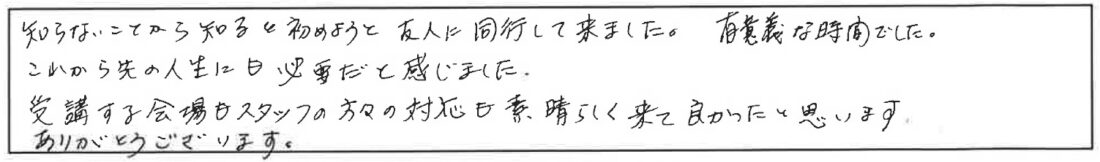 知らないことから知ると初めようと友人に同行して来ました。 有意義な時間でした。
これから先の人生にも必要だと感じました.
受講する会場もスタッフの方々の対応も素晴らしく来て良かったと思います.
ありがとうございます。